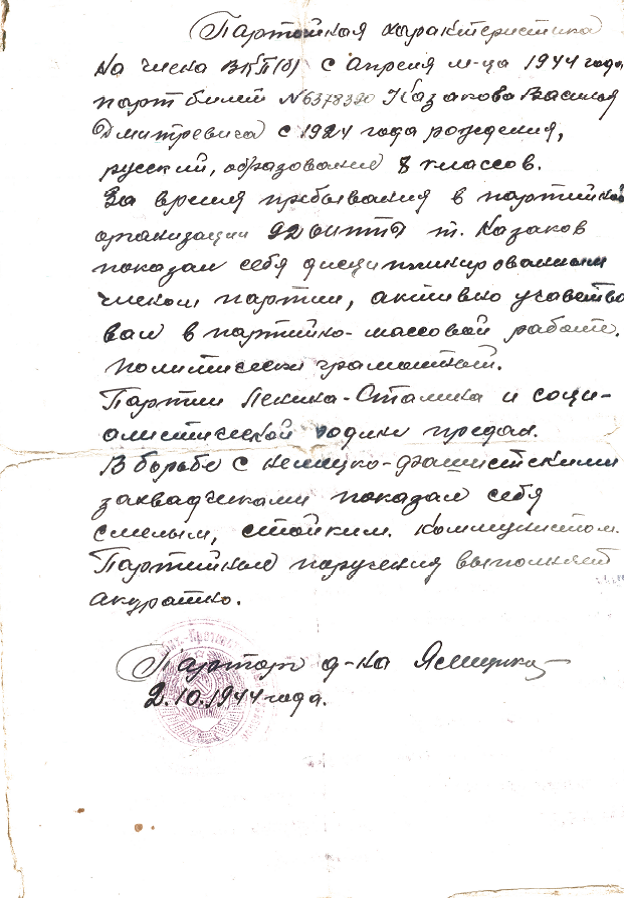 Партийная характеристика
на члена ВКП(б) с апреля м-ца 1944 года,
партбилет №6378390 Казакова Василия
Дмитревича с 1924 года рождения,
русский, образование 8 классов.
За время пребывания в партийной
организации 92 оиптд т. Казаков
показал себя дисциплинированным
членом партии, активно учавство
вал в партийно-массовой работе.
Политически грамотный.
Партии Ленина-Сталина и соци-
алистической родины предан.
В борьбе с немецко-фашистскими
захвадчиками показал себя
смелым, стойким коммунистом.
Партийные паручения выполняет
акуратно.
Парторг д-на
2.10.1944 года.